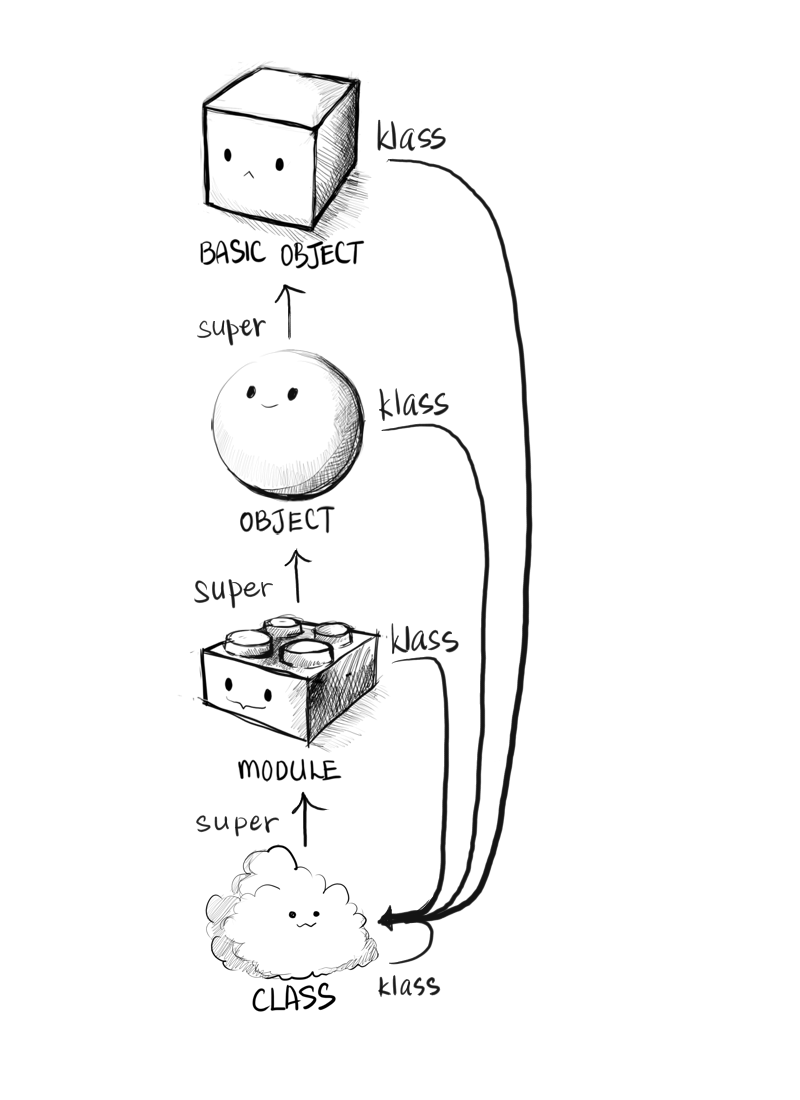 klass
BASIC OBJECT
super
klass
OBJECT
super
klass
MODULE
super
klass
CLASS